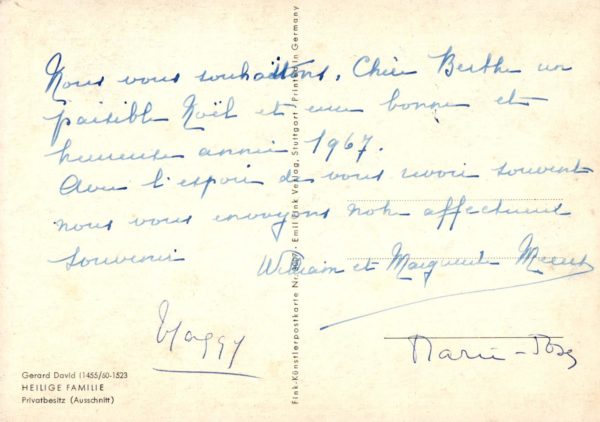 Nous vous souhaitons, Chère Berthe un
paisible Noël et une bonne et
heureuse année 1967.
Avec l'espoir de vous revoir souvent
nous vous envoyons notre affectueux
souvenir
William et Marguerite
Maggy
Marie-Rose
Gerard David (1455/60-1523
HEILIGE FAMILIE
Privatbesitz (Ausschnitt)
Fink-Künstlerpostkarte Nr. Emil Fink Verlag, Stuttgart / Printed in Germany